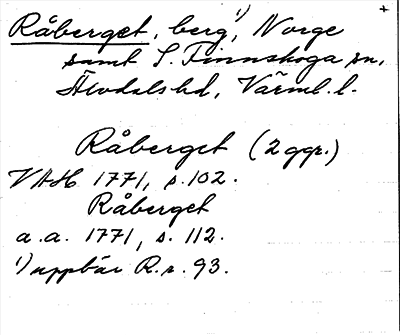 Råberget, berg¹), Norge +
samt S. Finnskoga sn,
Älvdals hd, Värml. l.
Råberget (2 ggr.)
VAH 1771, s. 102.
Råberget
a.a. 1771, s. 112.
¹) uppbär R.r. 93.